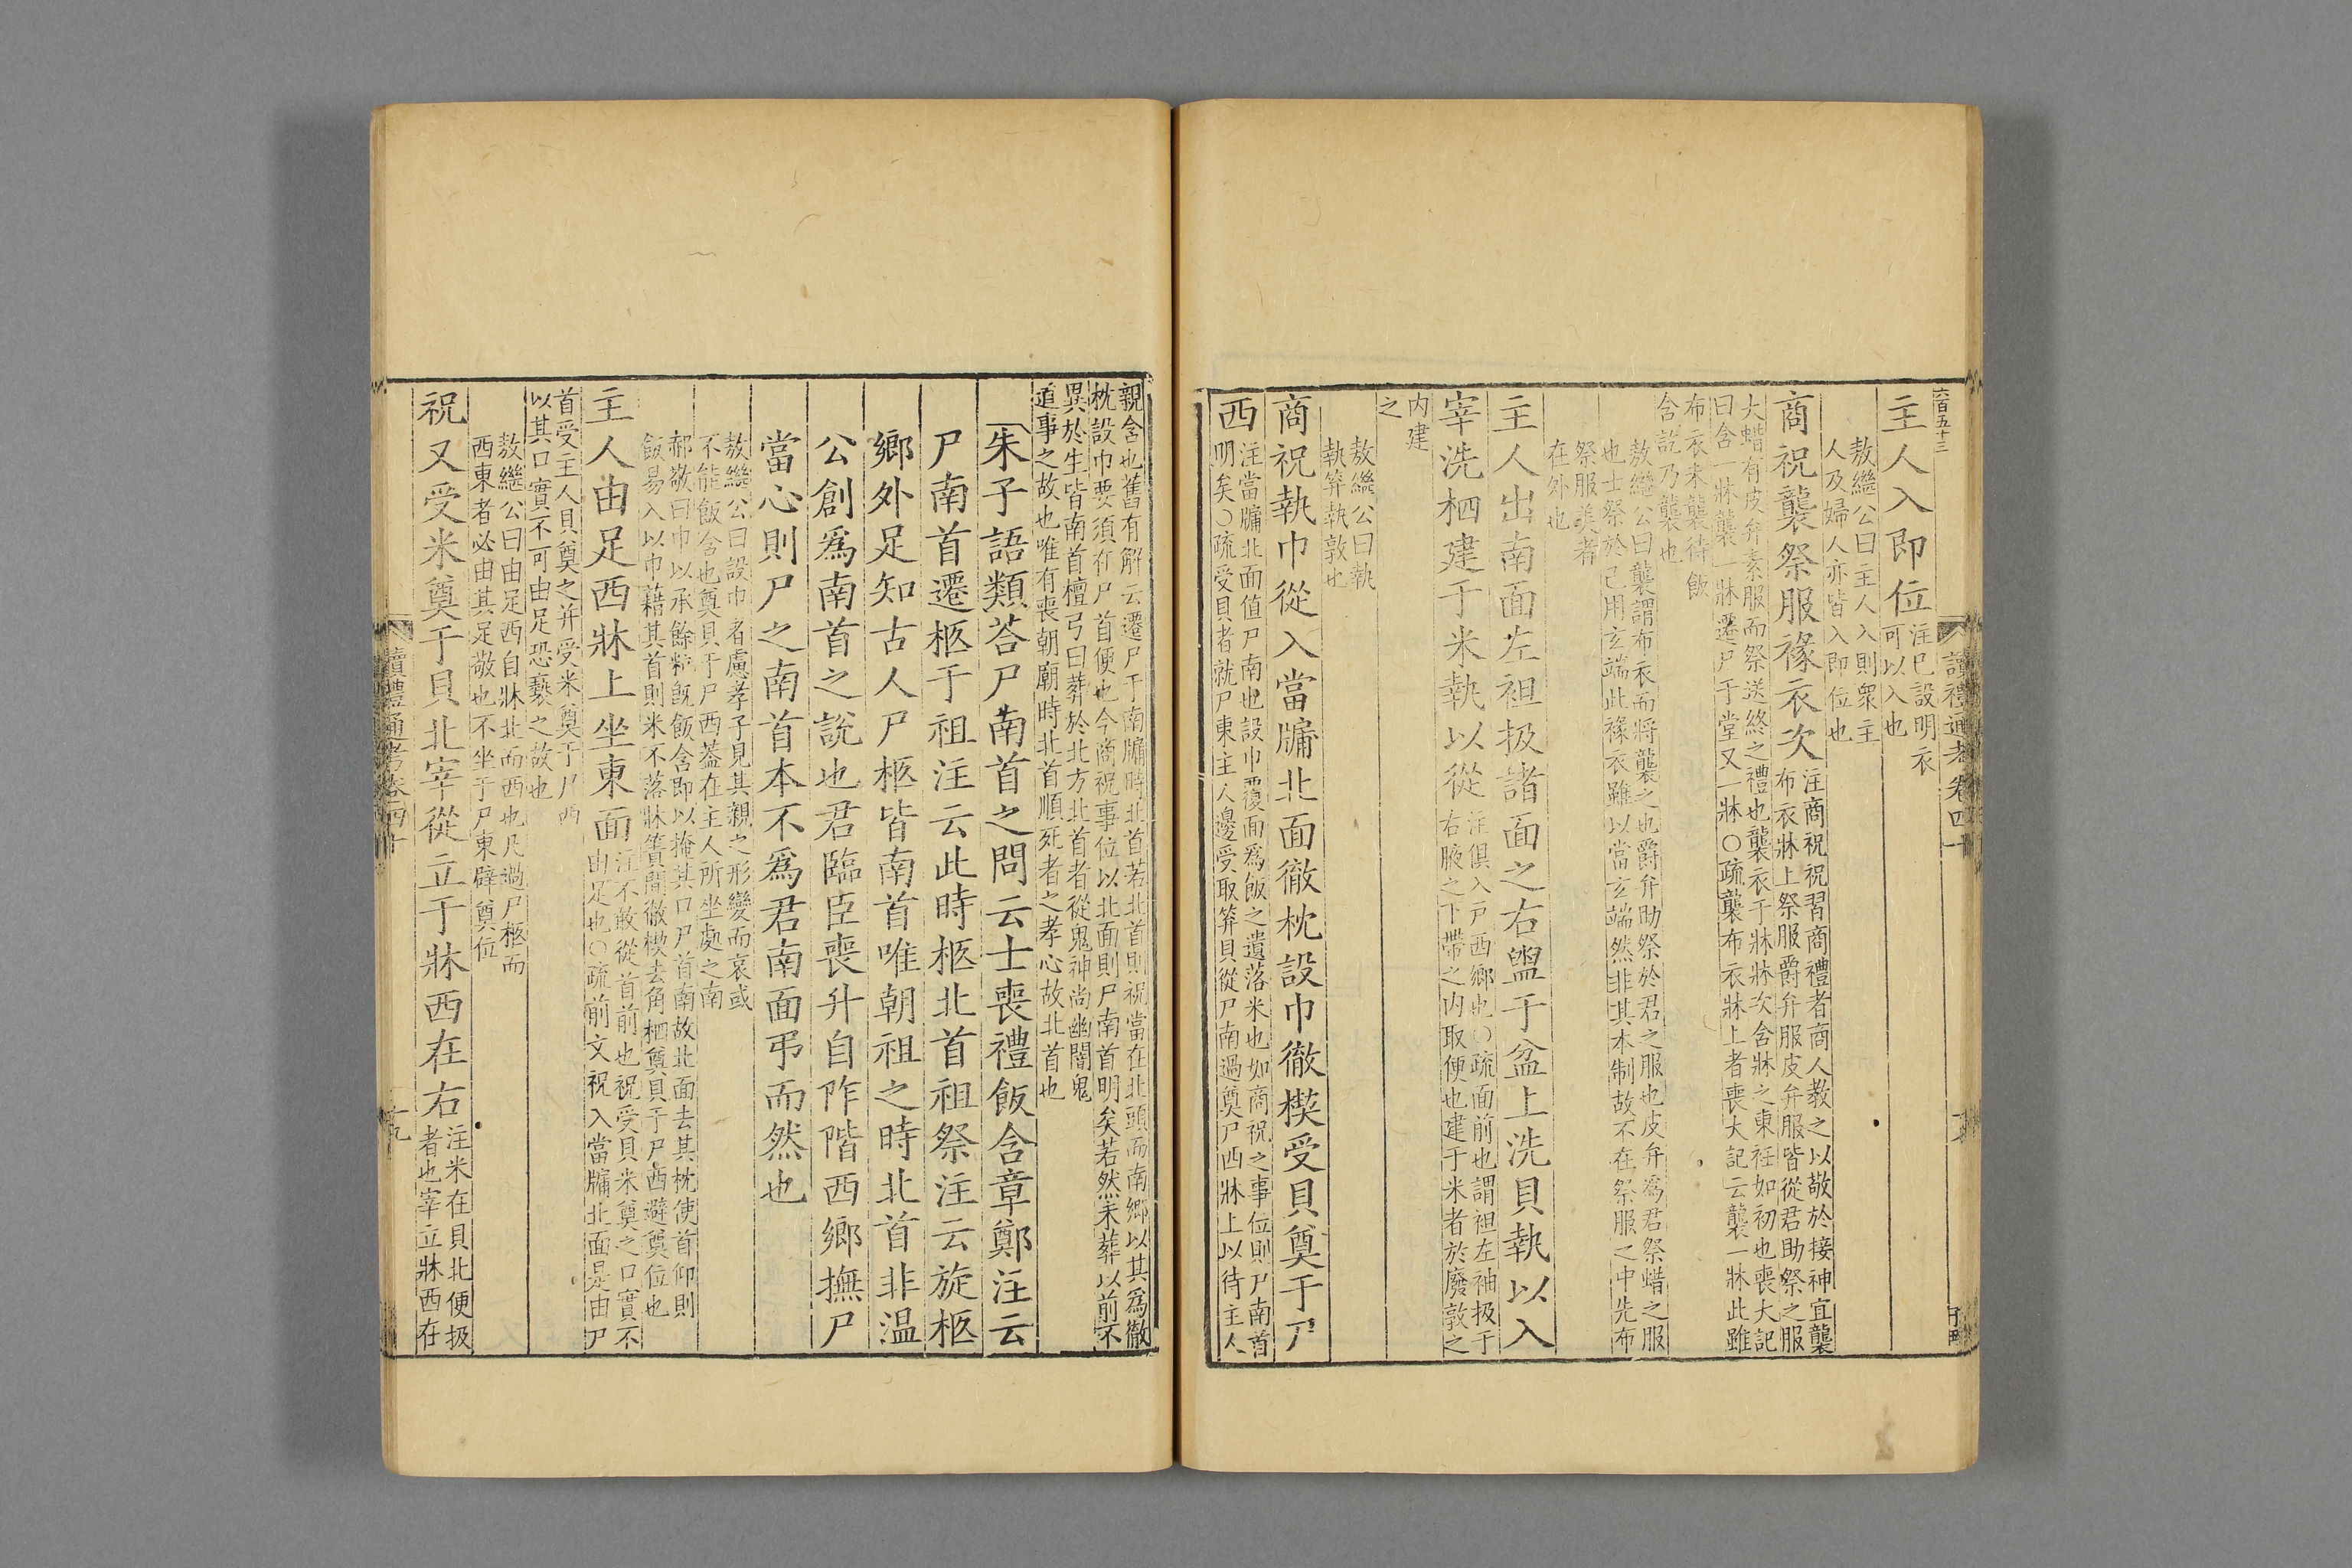 六百五十三
讀禮通考卷四十
主人入即位注已設明衣
可以入也
敖繼公曰主人入則衆主
人及婦人亦皆入即位也
商祝襲祭服褖衣次注商祝祝習商禮者商人教之以敬於接神宜襲
布衣牀上祭服爵弁服皮弁服皆從君助祭之服
大蜡有皮弁素服而祭送終之禮也襲衣于牀牀次含牀之東衽如初也喪大記
曰含一牀襲一牀遷尸于堂又一牀〇疏襲布衣牀上者喪大記云襲一牀此雖
布衣未襲待飯
含訖乃襲也
敖繼公曰襲謂布衣而將襲之也爵弁助祭於君之服也皮弁爲君祭蜡之服
也士祭於己用玄端此褖衣雖以當玄端然非其本制故不在祭服之中先布
祭服美者
在外也
主人出南面左袒扱諸面之右盥于盆上洗貝執以入
宰洗柶建于米執以從注俱入戸西鄉也〇疏面前也謂袒左袖扱于
右腋之下帶之内取便也建于米者於廢敦之
内建
之
敖繼公曰執
執筭執敦也
商祝執巾從入當牖北面徹枕設巾徹楔受貝奠于尸
西注當牖北面值尸南也設巾覆面爲飯之遺落米也如商祝之事位則尸南首
明矣〇疏受貝者就尸東主人邊受取筭貝從尸南過奠尸西牀上以待主人
親含也舊有解云遷尸于南牖時北首若北首則祝當在北頭而南鄉以其爲徹
枕設巾要須在尸首便也今商祝事位以北面則尸南首明矣若然未葬以前不
異於生皆南首檀弓曰葬於北方北首者從鬼神尚幽闇鬼
道事之故也唯有喪朝廟時北首順死者之孝心故北首也
朱子語類荅尸南首之問云士喪禮飯含章鄭注云
尸南首遷柩于祖注云此時柩北首祖祭注云旋柩
鄉外足知古人尸柩皆南首唯朝祖之時北首非温
公創爲南首之說也君臨臣喪升自阼階西鄉撫尸
當心則尸之南首本不爲君南面弔而然也
敖繼公曰設巾者慮孝子見其親之形變而哀或
不能飯含也奠貝于尸西葢在主人所坐處之南
郝敬曰巾以承餘粒既飯含即以掩其口尸首南故北面去其枕使首仰則
飯易入以巾藉其首則米不落牀簀間徹楔去角柶奠貝于尸西避奠位也
主人由足西牀上坐東面注不敢從首前也祝受貝米奠之口實不
由足也〇疏前文祝入當牖北面是由尸
首受主人貝奠之并受米奠于尸西
以其口實不可由足恐褻之故也
敖繼公曰由足西自牀北而西也凡過尸柩而
西東者必由其足敬也不坐于尸東辟奠位
祝又受米奠于貝北宰從立于牀西在右注米在貝北便扱
者也宰立牀西在
讀禮通考卷四十
十九